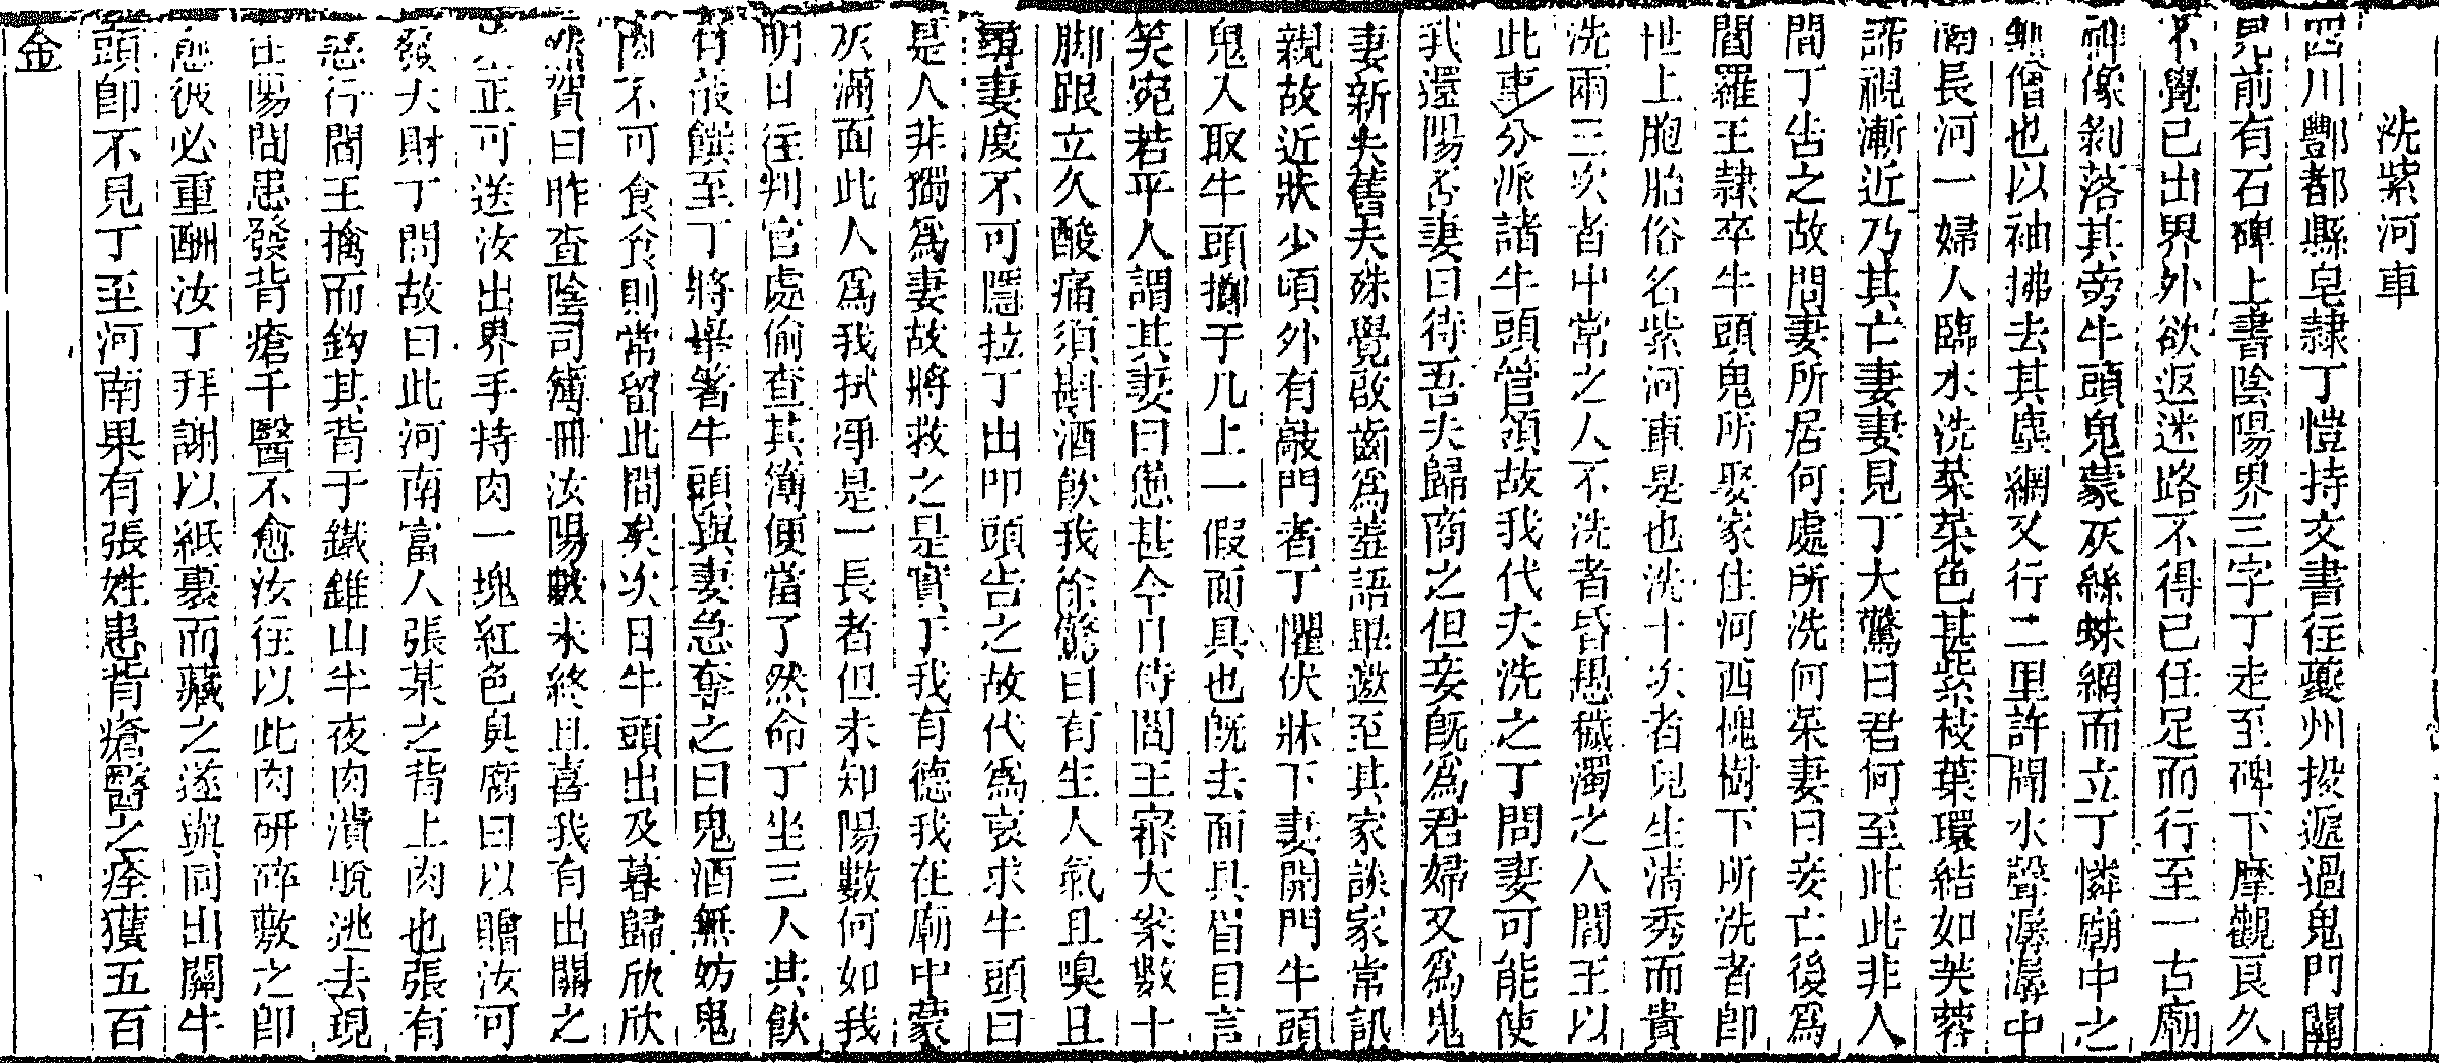 洗紫河車
四川酆都縣皂隸丁愷持文書往夔州投遞過鬼門關
見前有石碑上書陰陽界三字丁走至碑下摩觀良久
不覺已出界外欲返迷路不得已任足而行至一古廟
神像剝落其旁牛頭鬼蒙灰絲蛛網而立丁憐廟中之
無僧也以袖拂去其塵網又行二里許聞水聲潺潺中
隔長河一婦人臨水洗菜菜色甚紫枝葉環結如芙蓉
諦視漸近乃其亡妻妻見丁大驚曰君何至此此非人
間丁告之故問妻所居何處所洗何菜妻曰妾亡後為
閻羅王隸卒牛頭鬼所娶家住河西槐樹下所洗者即
世上胞胎俗名紫河車是也洗十次者兒生清秀而貴
洗兩三次者中常之人不洗者昏愚穢濁之人閻王以
此事分派諸牛頭管領故我代夫洗之丁問妻可能使
我還陽否妻曰待吾夫歸商之但妾既為君婦又為鬼
妻新夫舊夫殊覺啟齒為羞語畢邀至其家談家常訊
親故近狀少頃外有敲門者丁懼伏牀下妻開門牛頭
鬼入取牛頭擲于几上一假面具也既去面具眉目言
笑宛若平人謂其妻曰憊甚今日侍閻王審大案數十
脚跟立久酸痛須斟酒飲我徐驚曰有生人氣且嗅且
尋妻度不可隱拉丁出叩頭告之故代為哀求牛頭曰
是人非獨為妻故將救之是實于我有德我在廟中蒙
灰滿面此人為我拭淨是一長者但未知陽數何如我
明日往判官處偷查其簿便當了然命丁坐三人共飲
有殽饌至丁將舉箸牛頭與妻急奪之曰鬼酒無妨鬼
肉不可食食則常留此間矣次日牛頭出及暮歸欣欣
然賀曰昨查陰司簿冊汝陽數未終且喜我有出關之
正可送汝出界手持肉一塊紅色臭腐曰以贈汝可
發大財丁問故曰此河南富人張某之背上肉也張有
惡行閻王擒而鈎其背于鐵錐山半夜肉潰脫逃去現
在陽間患發背瘡千醫不愈汝往以此肉研碎敷之即
愈彼必重酬汝丁拜謝以紙裹而藏之遂與同出關牛
頭即不見丁至河南果有張姓患背瘡醫之痊獲五百
金